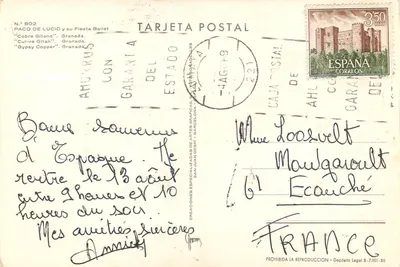 N.º 802
PACO DE LUCIO y su Fiesta Ballet
"Cobre Gitano", Granada
"Curros Gitan", Granada
"Gypsy Copper", Granada
TARJETA POSTAL
AHORROS
CON
GARANTIA
DEL
ESTADO
-4AGO
69
CAJA POSTAL
DE
AHO
CON
GARANTIA
DEL
2,50
PTAS
ESPAÑA
CORREOS
Bons souvenirs
d'Espagne. Je
rentre le 13 août
entre 9 heures et 10
heures du soir.
Mes amitiés sincères
Annick
Mme Loosvelt
Maugavoult
61 Ecouché
FRANCE
PROHIBIDA LA REPRODUCCION - Depósito Legal B-